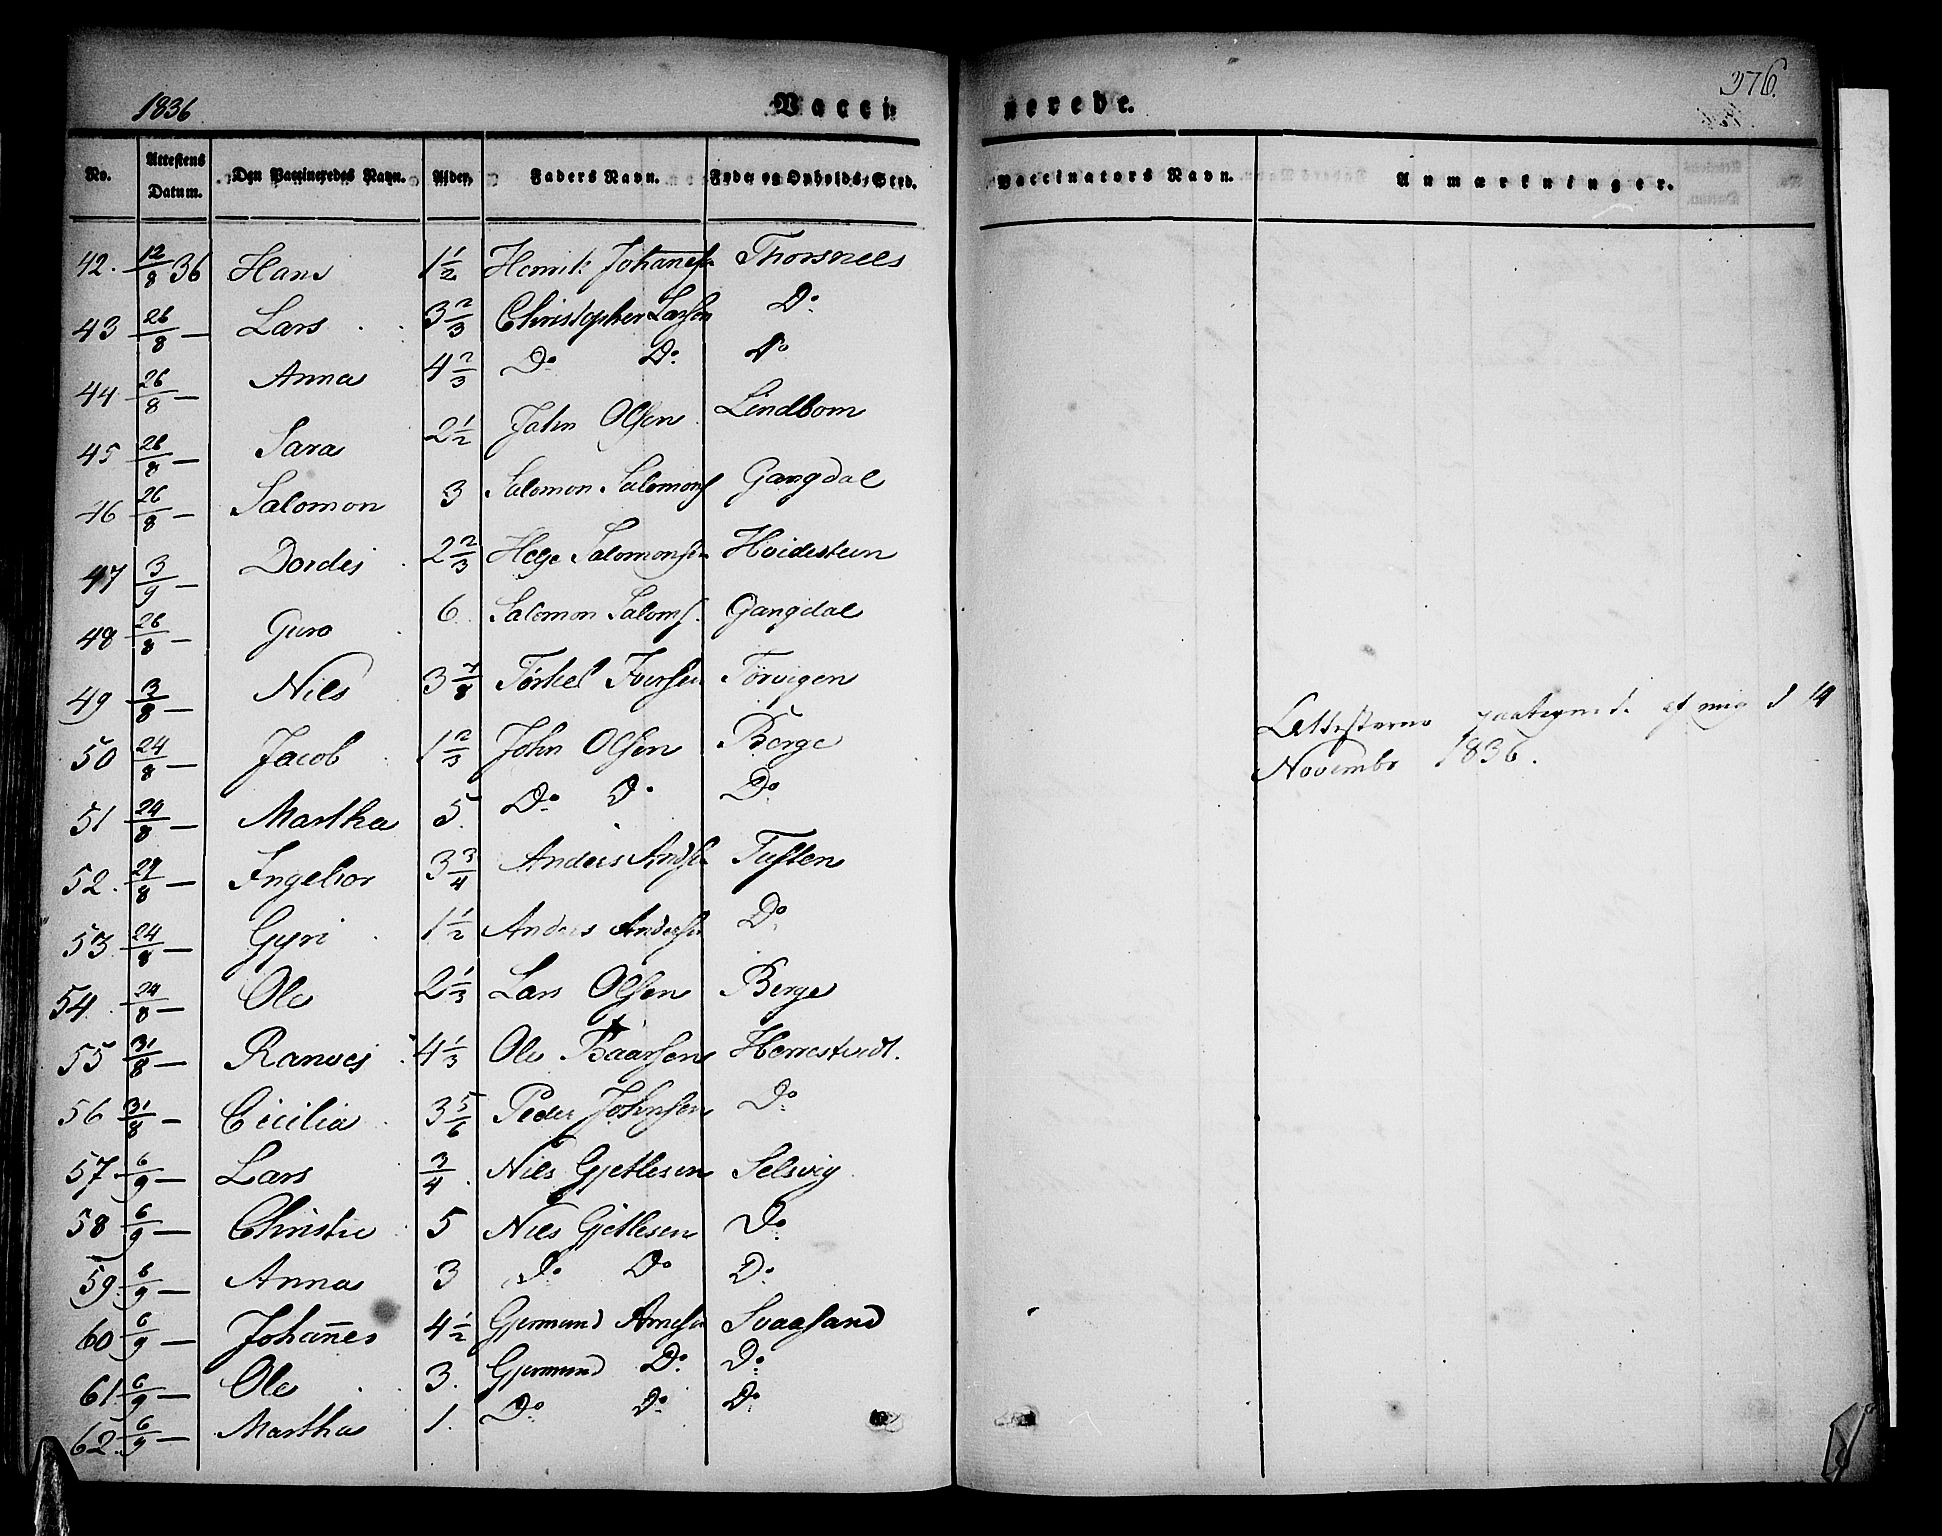 1836 Vacci nerede. 376.
No. Attestens Datum. Den Vaccineredes Navn. Alder. Faders Navn. Føde og Opholds-Sted. Vaccinators Navn. Anmærkninger.
42. 12/8 36 Hans 1 1/2 Henrik Johanes Thorsnees
43 26/8 — Lars 3 2/3 Christopher Larsen Do
44 26/8 — Anna 4 2/3 Do Do Do
45 26/8 — Sara 2 1/2 John Olsen Lindbom
46 26/8 — Salomon 3 Salomon Salomons Gangdal
47 3/9 — Dordei 2 2/3 Helge Salomonsen Hvidesteen
48 26/8 — Guro 6 Salomon Saloms. Gangdal
49 3/8 — Niels 3 7/8 Törkel Iversen Törvigen
50 24/8 — Jacob 1 2/3 John Olsen Berge
51 24/8 — Martha 5. Do Do Do
52. 24/8 — Ingebor 3 3/4 Anders Andsen Tuften
53. 24/8 — Gyri 1 1/2 Anders Andersen Do
54. 24/8 — Ole 2 1/3 Lars Olsen Berge
55 31/8 — Ranvei 4 1/3 Ole Baarsen Herrestvedt.
56 31/8 — Cicilia 3 5/6 Peder Johnsen Do
57 6/9 — Lars 3/4 Niels Gjetlesen Selsvig
58 6/9 — Christie 5 Niels Gjetlesen Do
59. 6/9 — Anna 3 Do Do Do
60 6/9 — Johannes 4 1/2 Gjermund Arnesen Svaasand
61. 6/9 — Ole 3. Gjermund Do Do
62. 6/9 — Martha 1. Do Do Do
Attesterne paategnede af mig d 14
Novembr 1836.